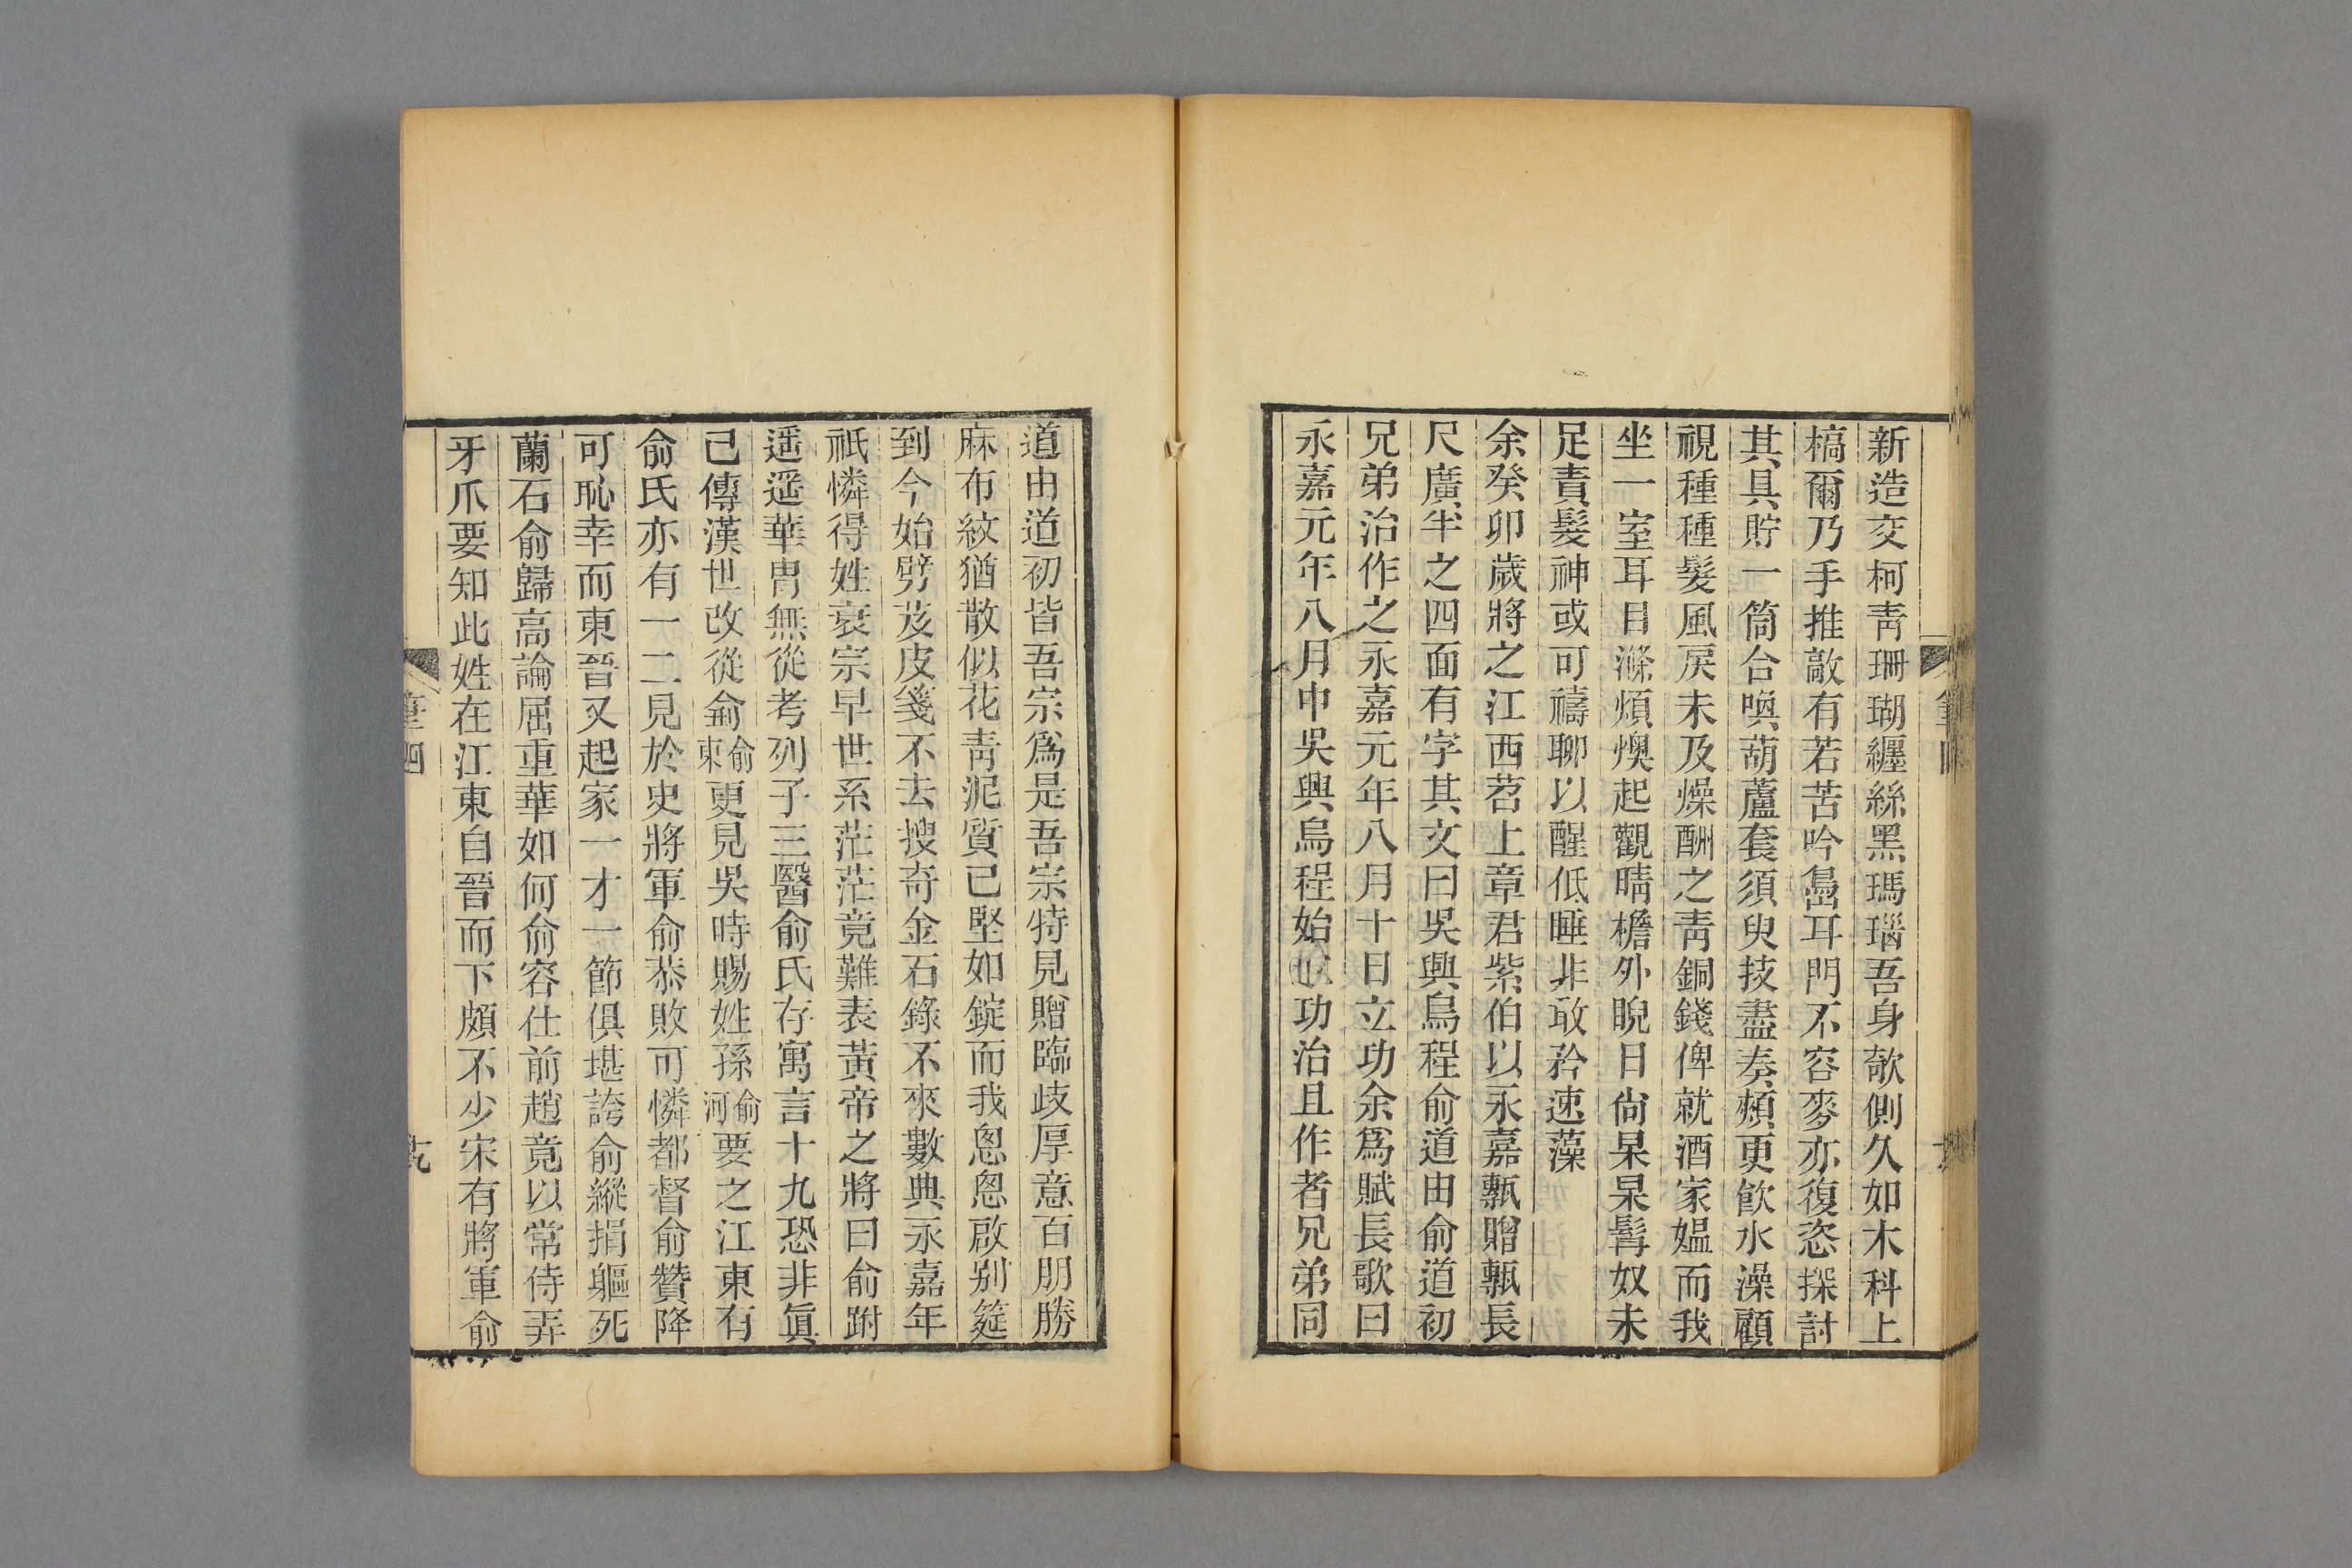 新造交柯靑珊瑚纒絲黑瑪瑙吾身欹側久如木科上
槁爾乃手推敲有若苦吟島耳門不容麥亦復恣探討
其具貯一筒台喚葫蘆套須臾技盡奏頮更飮水澡顧
視種種髮風戾未及燥酬之靑銅錢俾就酒家媼而我
坐一室耳目滌煩燠起觀晴檐外睨日尙杲杲髯奴未
足責髮神或可禱聊以醒低睡非敢矜速藻
余癸卯歲將之江西苕上章君紫伯以永嘉甎贈甎長
尺廣半之四面有字其文曰吳興烏程俞道由俞道初
兄弟治作之永嘉元年八月十日立功余爲賦長歌曰
永嘉元年八月中吳興烏程始 功治且作者兄弟同
道由道初皆吾宗爲是吾宗特見贈臨歧厚意百朋勝
麻布紋猶散似花靑泥質已堅如錠而我悤悤啟别筵
到今始劈芨皮箋不去搜奇金石錄不來數典永嘉年
祇憐得姓衰宗早世系茫茫竟難表黃帝之將曰俞跗
遥遥華胄無從考列子三醫俞氏存寓言十九恐非眞
已傳漢世改從侖俞東更見吳時賜姓孫俞河要之江東有
俞氏亦有一二見於史將軍俞恭敗可憐都督俞贊降
可恥幸而東晉又起家一才一節俱堪誇俞縱捐軀死
蘭石俞歸高論屈重華如何俞容仕前趙竟以常侍弄
牙爪要知此姓在江東自晉而下頗不少宋有將軍俞